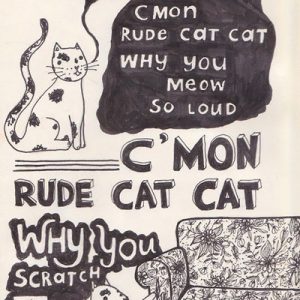 CMON
RUDE CAT CAT
WHY YOU
MEOW
SO LOUD
C'MON
RUDE CAT CAT
WHY YOU
SCRATCH